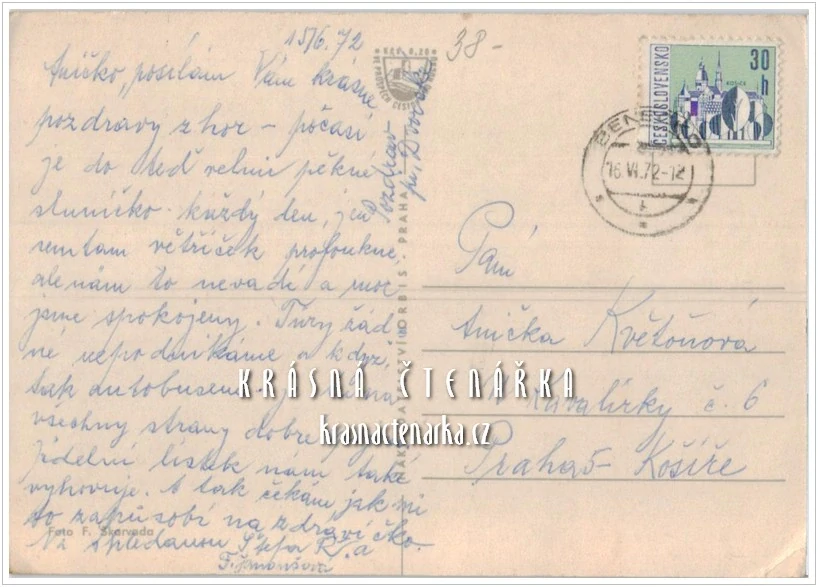 15/6.72
38-
Aničko, posílám Vám krásné
pozdravy z hor – počasí
je do teď velmi pěkné
sluníčko každý den, jen
semtam větříček profoukne,
ale nám to nevadí a moc
jsme spokojeny. Túry žád
né nepodnikáme a když,
tak autobusem
všechny strany dobře
Jídelní lístek nám také
vyhovuje. A tak čekám jak mi
to zapůsobí na zdravíčko.
Na shledanou Štefa K. a
Pozdrav
Dvořák
ORBIS PRAHA
Foto F. Skorvada
ČESKOSLOVENSKO
30
h
KOŠICE
16.VI.72-12
Paní
Anička Květoňová
Kavalírky č. 6
Praha 5 - Košíře
KRÁSNÁ ČTENÁŘKA
krasnactenarka.cz